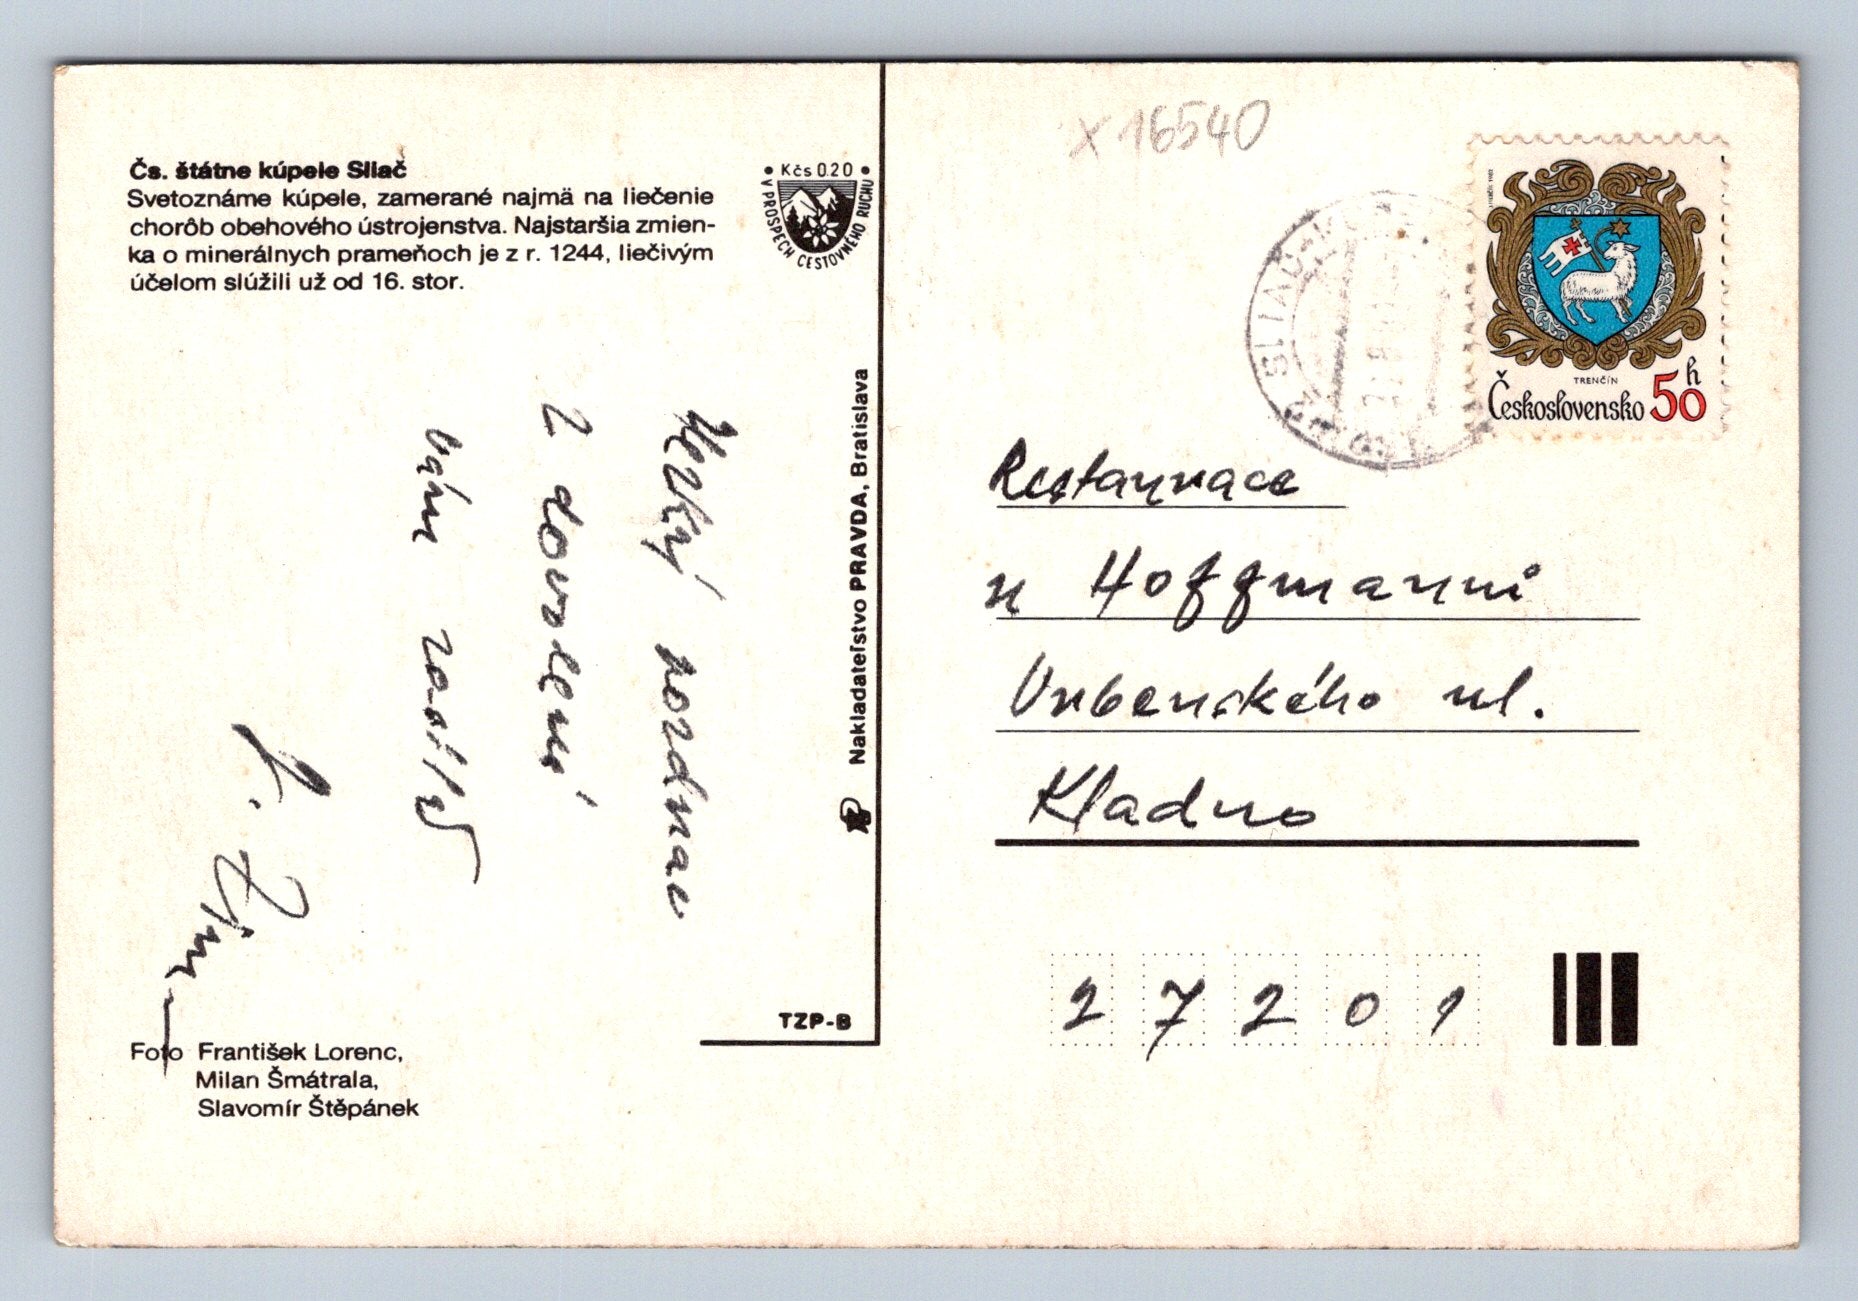 Čs. štátne kúpele Sliač
Svetoznáme kúpele, zamerané najmä na liečenie
chorôb obehového ústrojenstva. Najstaršia zmien-
ka o minerálnych prameňoch je z r. 1244, liečivým
účelom slúžili už od 16. stor.
Kčs 0.20
V PROSPECH CESTOVNÉHO RUCHU
Hezký pozdrav
z dovolené
vám zasílá
Foto František Lorenc,
Milan Šmátrala,
Slavomír Štěpánek
Nakladateľstvo PRAVDA, Bratislava
TZP-B
x 16540
SLIAČ-KÚPELE
TRENČÍN
Československo 50 h
Restaurace
u Hoffmannů
Vrbenského ul.
Kladno
27201